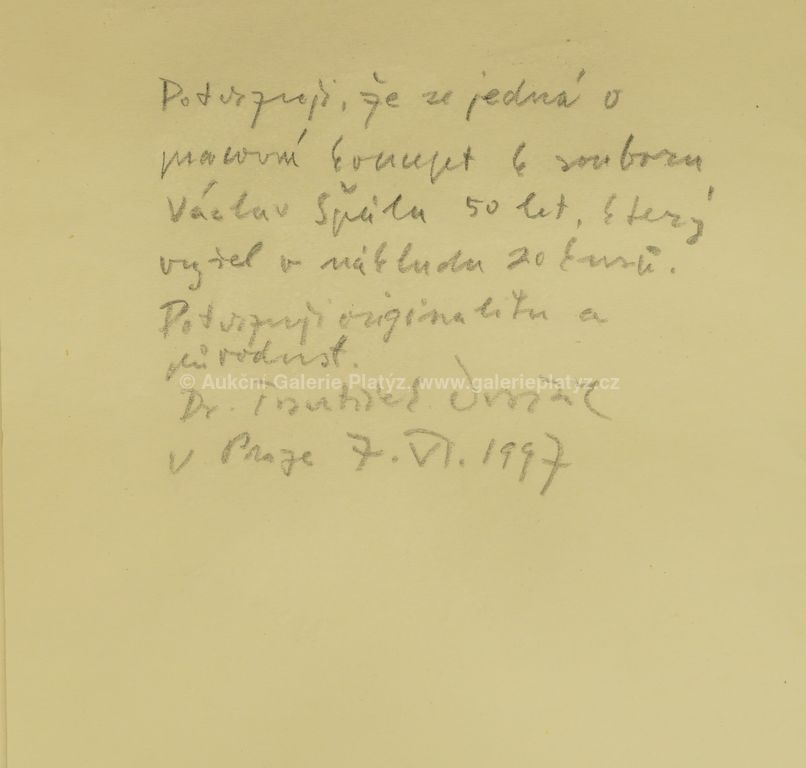 Potvrzuji, že se jedná o
pracovní koncept k souboru
Václav Špála 50 let, který
vyšel v nákladu 20 kusů.
Potvrzuji originalitu a
původnost.
© Aukční Galerie Platýz, www.galerieplatyz.cz
Dr. František Dvořák
V Praze 7. VI. 1997